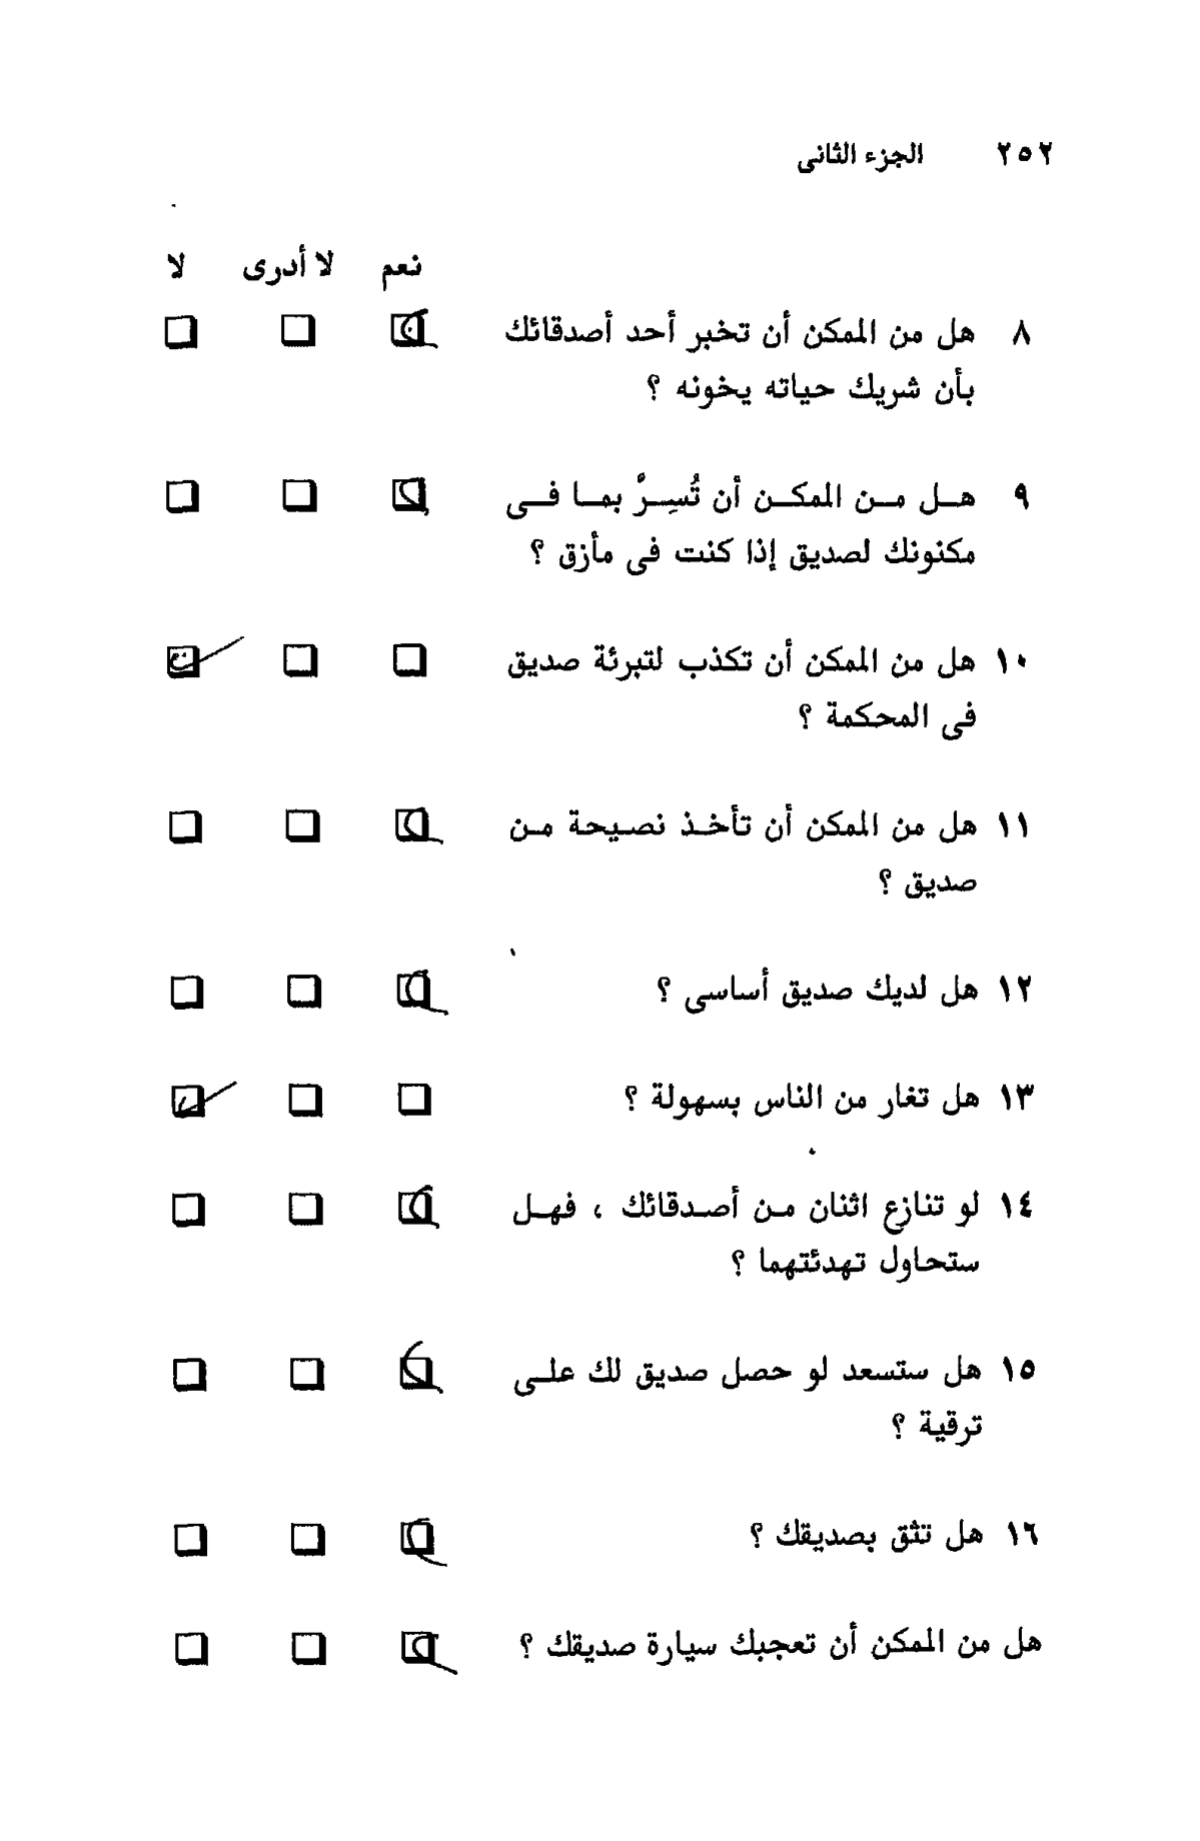 ٢٥٢ الجزء الثانى
نعم لا أدرى لا
٨ هل من الممكن أن تخبر أحد أصدقائك
بأن شريك حياته يخونه ؟
٩ هـل مـن الممكـن أن تُسِـرَّ بمـا فـى
مكنونك لصديق إذا كنت فى مأزق ؟
١٠ هل من الممكن أن تكذب لتبرئة صديق
فى المحكمة ؟
١١ هل من الممكن أن تأخـذ نصـيحة مـن
صديق ؟
١٢ هل لديك صديق أساسى ؟
١٣ هل تغار من الناس بسهولة ؟
١٤ لو تنازع اثنان مـن أصـدقائك ، فهـل
ستحاول تهدئتهما ؟
١٥ هل ستسعد لو حصل صديق لك علـى
ترقية ؟
١٦ هل تثق بصديقك ؟
هل من الممكن أن تعجبك سيارة صديقك ؟